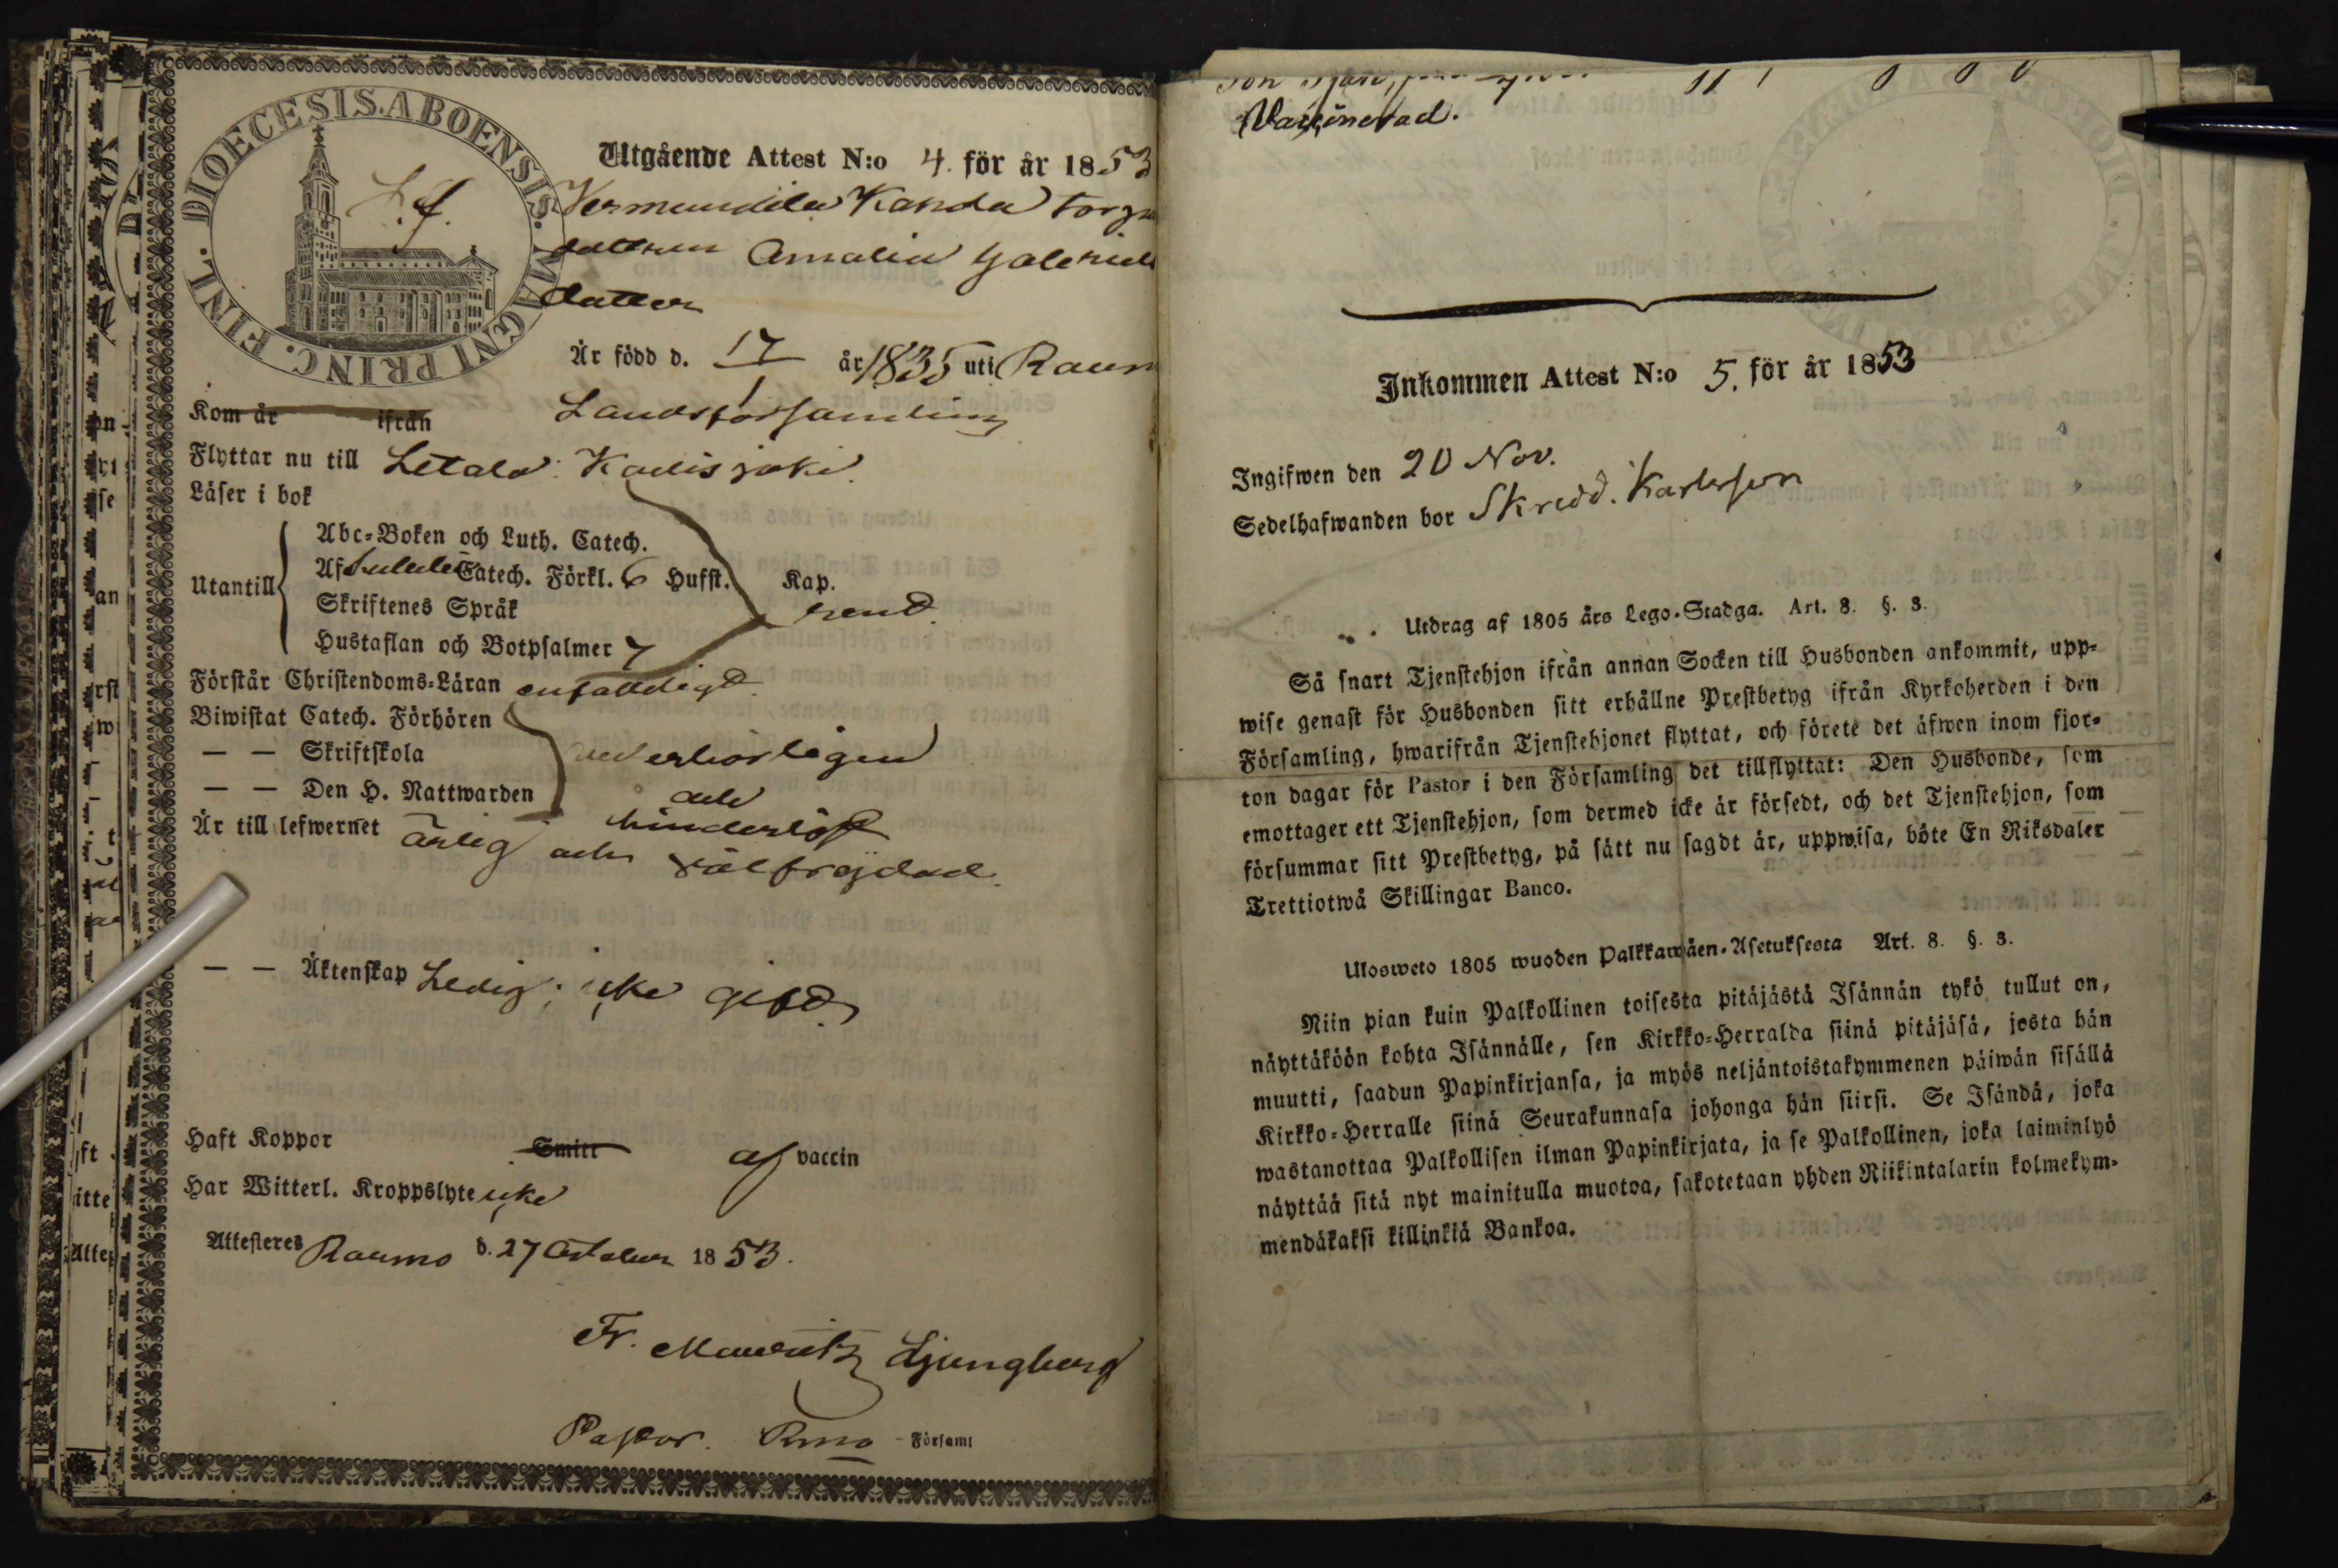 DIOECESIS. ABOENSIS. MAGNI PRINC. FINL.
Utgående Attest N:o 4. för år 1853
Vermundila Kanda Torp
dottren Amalia Gabriels
dotter
Är född d. 17/1 år 1835 uti Raum
Landsförsamling
Kom år ifrån
Flyttar nu till Letala Kadisjoki
Läser i bok
Utantill
Abc-Boken och Luth. Catech.
Af Catech. Förkl. 6 Hufst. Kap.
Skriftenes Språk rend.
Hustaflan och Botpsalmer 7
Förstår Christendoms-Läran enfaldigt
Biwistat Catech. Förhören
— — Skriftskola vederbörligen
— — Den H. Nattwarden
och hinderlös
Är till lefwernet ärlig och välfrejdad.
— — Äktenskap Ledig; icke gift
Haft Koppor Smitt af vaccin
Har Witterl. Kroppslyte icke
Attesteres Raumo d. 27 October 1853.
Fr. Mauritz Ljungberg
Pastor. Rmo Församl
Vaccinerad.
Inkommen Attest N:o 5. för år 1853
Ingifwen den 20 Nov.
Sedelhafwanden bor Skredd. Karlsson
Utdrag af 1805 års Lego-Stadga. Art. 8. §. 3.
Så snart Tjenstehjon ifrån annan Socken till Husbonden ankommit, upp-
wise genast för Husbonden sitt erhållne Prestbetyg ifrån Kyrkoherden i den
Församling, hwarifrån Tjenstehjonet flyttat, och förete det äfwen inom fjor-
ton dagar för Pastor i den Församling det tillflyttat: Den Husbonde, som
emottager ett Tjenstehjon, som dermed icke är försedt, och det Tjenstehjon, som
försummar sitt Prestbetyg, på sätt nu sagdt är, uppwisa, böte En Riksdaler
Trettiotwå Skillingar Banco.
Ulosweto 1805 wuoden Palkkawäen-Asetuksesta Art. 8. §. 3.
Niin pian kuin Palkollinen toisesta pitäjästä Isännän tykö tullut on,
näyttäköön kohta Isännälle, sen Kirkko-Herralda siinä pitäjäsä, josta hän
muutti, saadun Papinkirjansa, ja myös neljäntoistakymmenen päiwän sisällä
Kirkko-Herralle siinä Seurakunnasa johonga hän siirsi. Se Isändä, joka
wastanottaa Palkollisen ilman Papinkirjata, ja se Palkollinen, joka laiminlyö
näyttää sitä nyt mainitulla muotoa, sakotetaan yhden Riikintalarin kolmekym-
mendäkaksi killinkiä Bankoa.